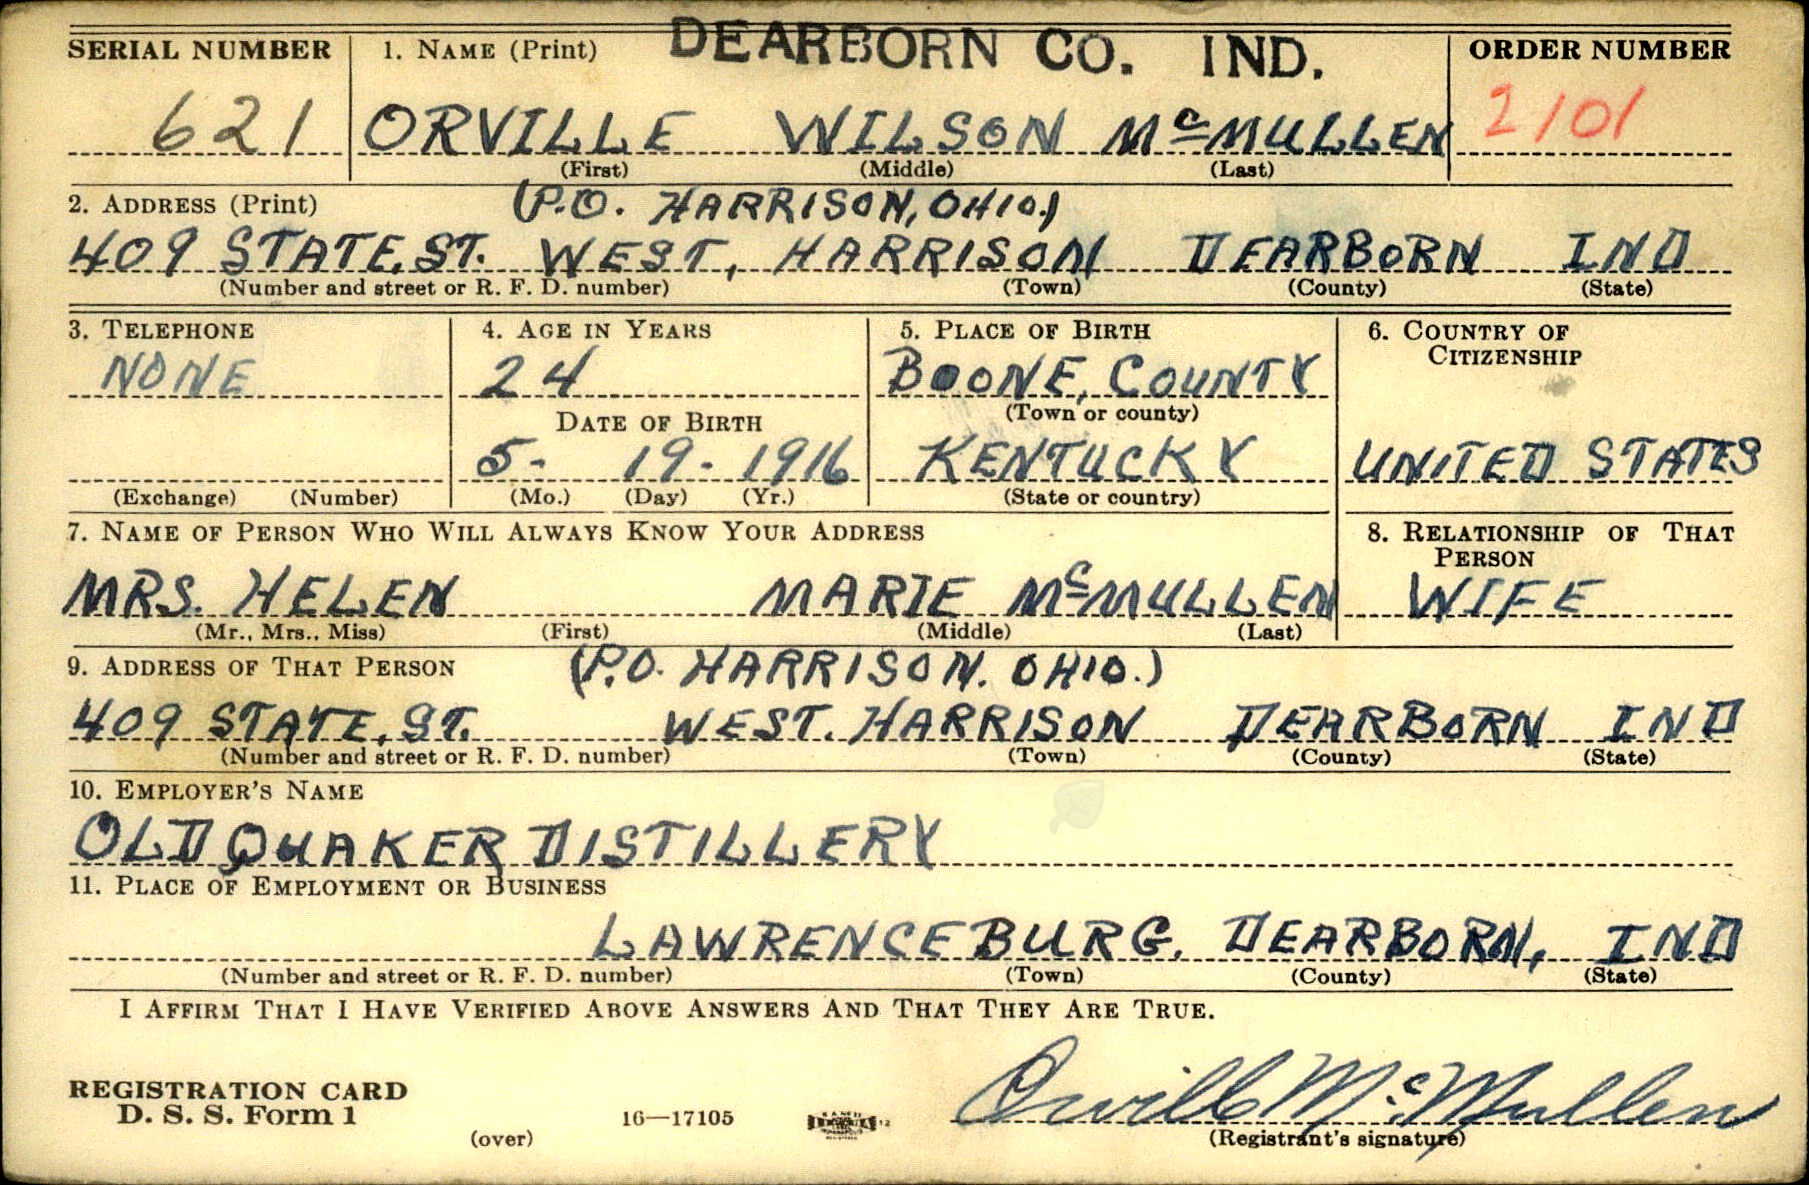 DEARBORN CO. IND.
SERIAL NUMBER 1. NAME (Print) ORDER NUMBER
621 ORVILLE WILSON McMULLEN 2101
(First) (Middle) (Last)
2. ADDRESS (Print) (P.O. HARRISON, OHIO.)
409 STATE, ST. WEST, HARRISON DEARBORN IND
(Number and street or R. F. D. number) (Town) (County) (State)
3. TELEPHONE 4. AGE IN YEARS 5. PLACE OF BIRTH 6. COUNTRY OF CITIZENSHIP
NONE 24 BOONE, COUNTY
DATE OF BIRTH (Town or county)
5- 19- 1916 KENTUCKY UNITED STATES
(Exchange) (Number) (Mo.) (Day) (Yr.) (State or country)
7. NAME OF PERSON WHO WILL ALWAYS KNOW YOUR ADDRESS 8. RELATIONSHIP OF THAT PERSON
MRS. HELEN MARIE McMULLEN WIFE
(Mr., Mrs., Miss) (First) (Middle) (Last)
9. ADDRESS OF THAT PERSON (P.O. HARRISON. OHIO.)
409 STATE, ST. WEST. HARRISON DEARBORN IND
(Number and street or R. F. D. number) (Town) (County) (State)
10. EMPLOYER'S NAME
OLD QUAKER DISTILLERY
11. PLACE OF EMPLOYMENT OR BUSINESS
LAWRENCEBURG, DEARBORN, IND
(Number and street or R. F. D. number) (Town) (County) (State)
I AFFIRM THAT I HAVE VERIFIED ABOVE ANSWERS AND THAT THEY ARE TRUE.
REGISTRATION CARD
D. S. S. Form 1 16—17105 Orville McMullen
(over) (Registrant's signature)